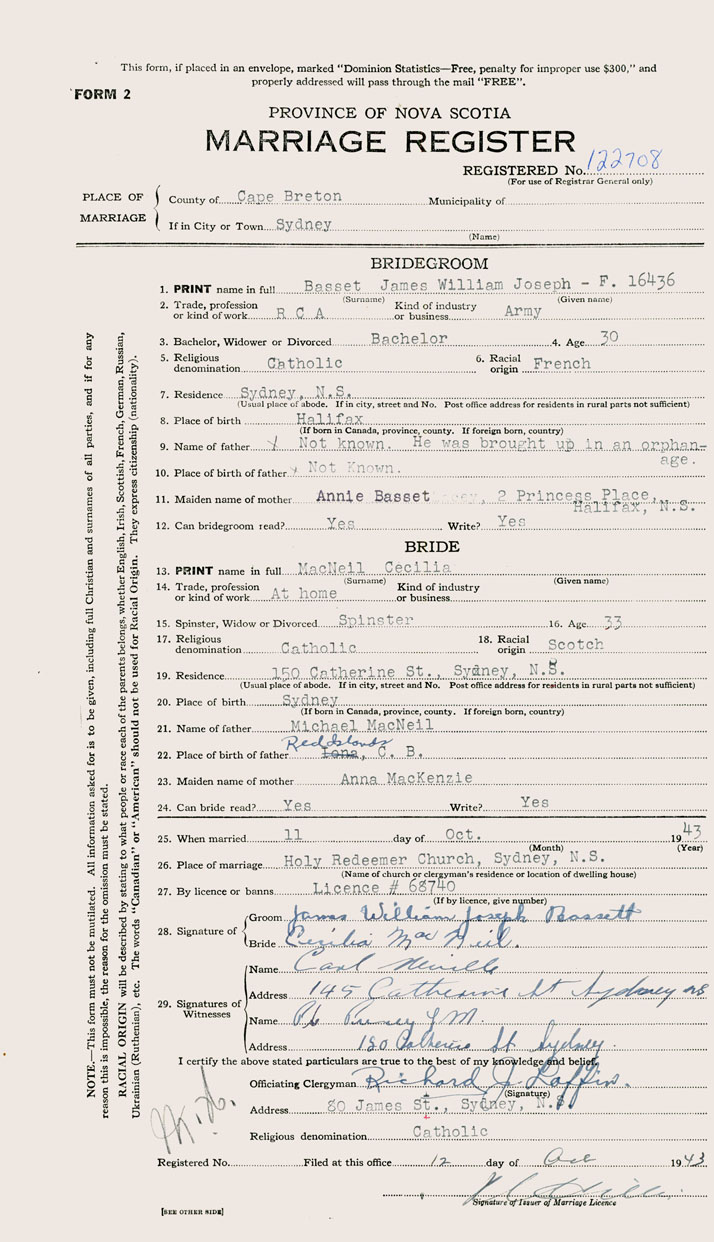 This form, if placed in an envelope, marked "Dominion Statistics—Free, penalty for improper use $300," and
properly addressed will pass through the mail "FREE".
FORM 2
PROVINCE OF NOVA SCOTIA
MARRIAGE REGISTER
REGISTERED No. 122708
(For use of Registrar General only)
PLACE OF MARRIAGE
County of Cape Breton Municipality of
If in City or Town Sydney
(Name)
BRIDEGROOM
1. PRINT name in full Basset James William Joseph - F. 16436
(Surname) (Given name)
2. Trade, profession or kind of work R C A Kind of industry or business Army
3. Bachelor, Widower or Divorced Bachelor 4. Age 30
5. Religious denomination Catholic 6. Racial origin French
7. Residence Sydney, N.S.
(Usual place of abode. If in city, street and No. Post office address for residents in rural parts not sufficient)
8. Place of birth Halifax
(If born in Canada, province, county. If foreign born, country)
9. Name of father Not known. He was brought up in an orphan-
age.
10. Place of birth of father Not Known.
11. Maiden name of mother Annie Basset , 2 Princess Place,
Halifax, N.S.
12. Can bridegroom read? Yes Write? Yes
BRIDE
13. PRINT name in full MacNeil Cecilia
(Surname) (Given name)
14. Trade, profession or kind of work At home Kind of industry or business
15. Spinster, Widow or Divorced Spinster 16. Age 33
17. Religious denomination Catholic 18. Racial origin Scotch
19. Residence 150 Catherine St., Sydney, N.S.
(Usual place of abode. If in city, street and No. Post office address for residents in rural parts not sufficient)
20. Place of birth Sydney
(If born in Canada, province, county. If foreign born, country)
21. Name of father Michael MacNeil
Red Islands
22. Place of birth of father Iona, C. B.
23. Maiden name of mother Anna MacKenzie
24. Can bride read? Yes Write? Yes
25. When married 11 day of Oct. 1943
(Month) (Year)
26. Place of marriage Holy Redeemer Church, Sydney, N.S.
(Name of church or clergyman's residence or location of dwelling house)
27. By licence or banns Licence # 68740
(If by licence, give number)
28. Signature of
Groom James William Joseph Bassett
Bride Cecilia MacNeil.
29. Signatures of Witnesses
Name Carl Neville
Address 145 Catherine St Sydney NS
Name
Address 180 Catherine St Sydney.
I certify the above stated particulars are true to the best of my knowledge and belief.
Officiating Clergyman Richard J. Laffin.
(Signature)
Address 80 James St., Sydney, N.S.
Religious denomination Catholic
Registered No. Filed at this office 12 day of Oct 1943
Signature of Issuer of Marriage Licence
[SEE OTHER SIDE]
NOTE.—This form must not be mutilated. All information asked for is to be given, including full Christian and surnames of all parties, and if for any
reason this is impossible, the reason for the omission must be stated.
RACIAL ORIGIN will be described by stating to what people or race each of the parents belongs, whether English, Irish, Scottish, French, German, Russian,
Ukrainian (Ruthenian), etc. The words "Canadian" or "American" should not be used for Racial Origin. They express citizenship (nationality).